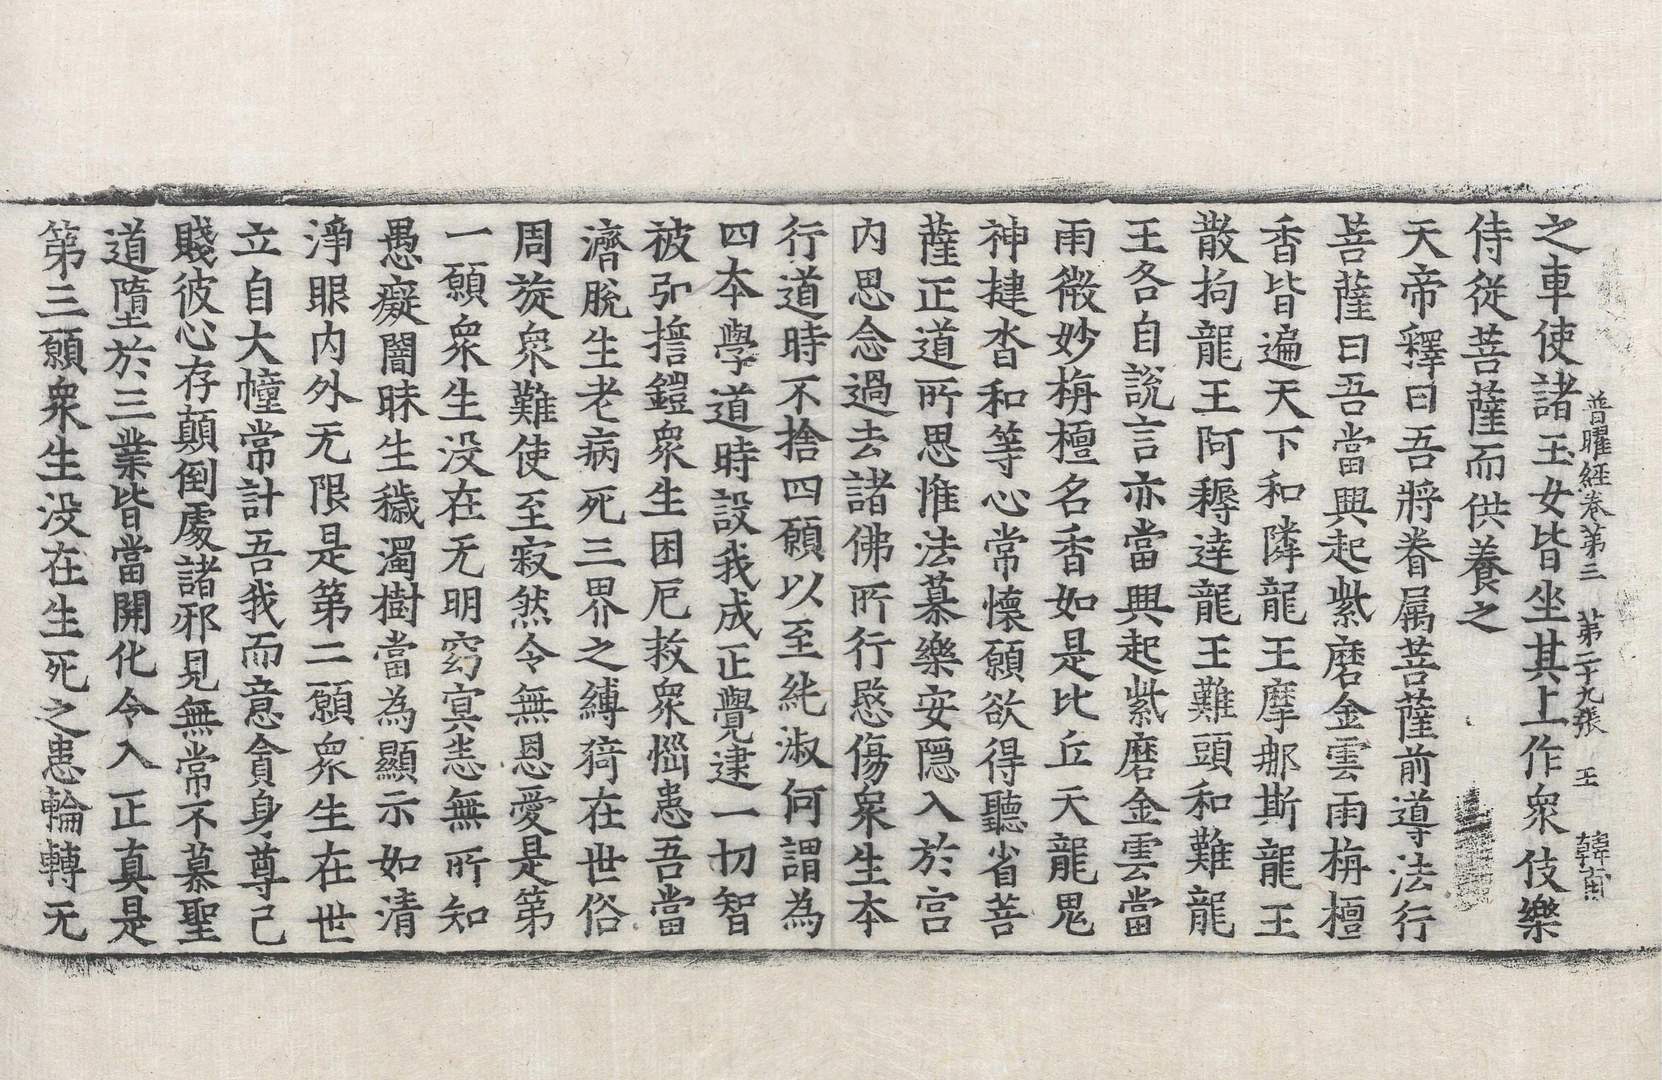 普曜經卷第三 第二十九張 王 韓甫
之車使諸玉女皆坐其上作衆伎樂
侍從菩薩而供養之
天帝釋曰吾將眷属菩薩前導法行
菩薩曰吾當興起紫磨金雲雨栴檀
香皆遍天下和隣龍王摩那斯龍王
散拘龍王阿耨達龍王難頭和難龍
王各自說言亦當興起紫磨金雲當
雨微妙栴檀名香如是比丘天龍鬼
神揵沓和等心常懷願欲得聽省菩
薩正道所思惟法慕樂安隱入於宫
内思念過去諸佛所行愍傷衆生本
行道時不捨四願以至純淑何謂為
四本學道時設我成正覺逮一切智
被弘誓鎧衆生困厄救衆惱患吾當
濟脫生老病死三界之縛猗在世俗
周旋衆難使至寂然令無恩愛是第
一願衆生没在无明窈冥恚無所知
愚癡闇昧生穢濁樹當為顯示如清
淨眼内外无限是第二願衆生在世
立自大幢常計吾我而意貪身尊己
賤彼心存顛倒處諸邪見無常不慕聖
道墮於三業皆當開化令入正真是
第三願衆生没在生死之患輪轉无